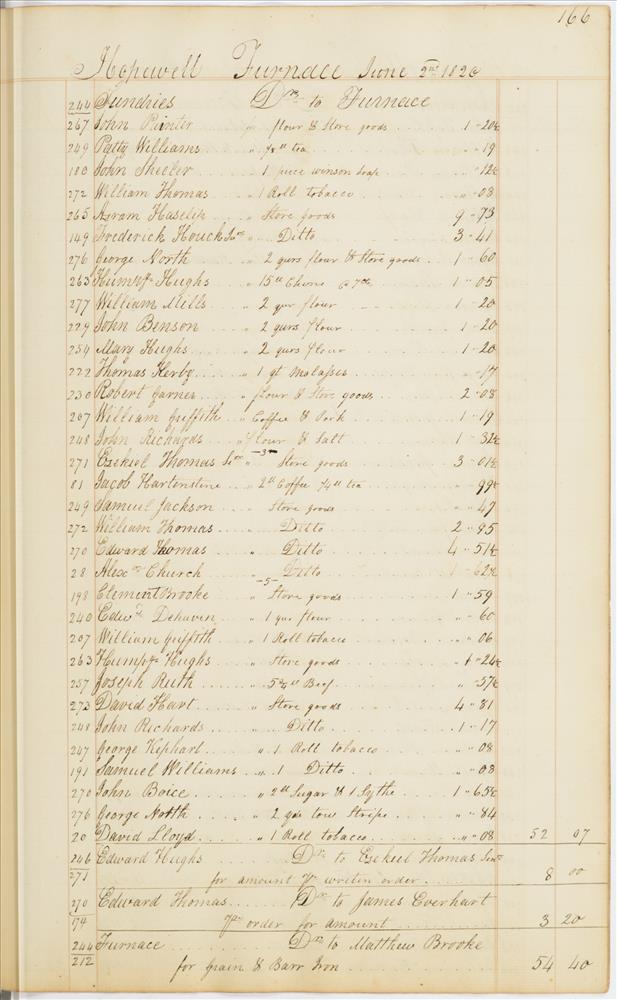 166
Hopewell Furnace June 2nd 1820
244 Sundries Drs to Furnace
267 John Painter " flour & Store goods 1 - 20½
249 Patty Williams " ⅛ lb tea " - 19
180 John Sheeler " 1 piece winson Soap " - 12½
272 William Thomas " 1 Roll tobacco " - 08
265 " Store goods 9 - 73
149 Frederick Houck Senr " Ditto 3 - 41
276 George North " 2 qurs flour & Store goods 1 - 60
263 Humpy Hughs " 15 lb @ 7cts 1 - 05
277 William Mills " 2 qur flour 1 - 20
229 John Benson " 2 qurs flour 1 - 20
254 Mary Hughs " 2 qurs flour 1 - 20
222 Thomas Kerby " 1 qt Molasses - 17
230 Robert Garnes " flour & Store goods 2 - 08
207 William Griffith " Coffee & Pork 1 - 19
248 John Richards " flour & Salt 1 - 32½
-3-
271 Ezekiel Thomas Senr " Store goods 3 - 01½
81 Jacob Hartenstine " 2 lb Coffee ¼ lb tea " 99½
249 Samuel Jackson " Store goods " " 47
272 William Thomas " Ditto 2 " 85
270 Edward Thomas " Ditto 4 - 51½
28 Alexr Church " Ditto 1 - 62½
-5-
198 Clement Brooke " Store goods 1 " 59
240 Edwd Dehaven " 1 qur flour " - 60
207 William Griffith " 1 Roll tobacco " " 06
263 Humpy Hughs " Store goods " 1 - 24½
257 Joseph Ruth " 5¾ lb Beef " - 57½
272 David Hart " Store goods 4 " 81
248 John Richards " Ditto 1 - 17
247 George Kephart " 1 Roll tobacco " " 08
191 Samuel Williams " 1 Ditto " " 08
270 John Boice " 2 lb Sugar & 1 Sythe 1 " 65½
276 George North " 2 yds tow Stripe " " 84
20 David Lloyd " 1 Roll tobacco " " 08 52 07
246 Edward Hughs Dr to Ezekiel Thomas Senr
271 for amount pr writen order 8 00
270 Edward Thomas Dr to James Everhart
174 pr order for amount 3 20
244 Furnace Dr to Matthew Brooke
212 for Grain & Barr Iron 54 40